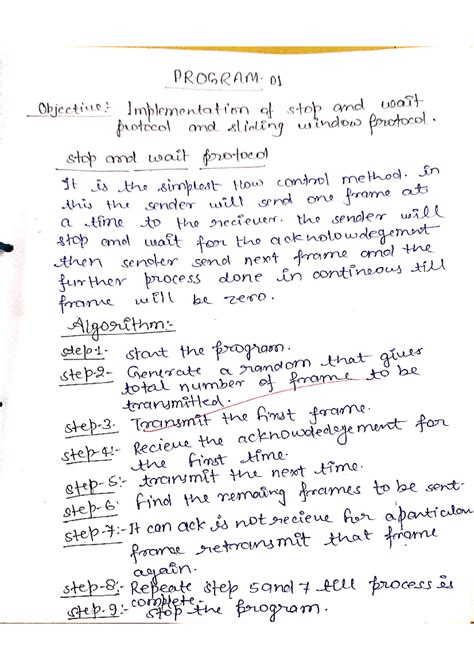 PROGRAM-01
Objective: Implementation of stop and wait
protocol and sliding window protocol.
stop and wait protocol
It is the simplest flow control method. in
this the sender will send one frame at
a time to the reciever. the sender will
stop and wait for the acknolowdegement
then sender send next frame and the
further process done in contineous till
frame will be zero.
Algorithm:-
step-1- start the program.
step-2- Generate a random that gives
total number of frame to be
transmitled.
step-3. Transmit the first frame.
step-4:- Recieve the acknowdedegement for
the first time.
step-5:- transmit the next time.
step-6: find the remaing frames to be sent-
step-7:- It can ack is not recieve for a particulan
frame retransmit that frame
again.
step-8:- Repeate step 5 and 7 till process is
complete.
step-9:- stop the program.